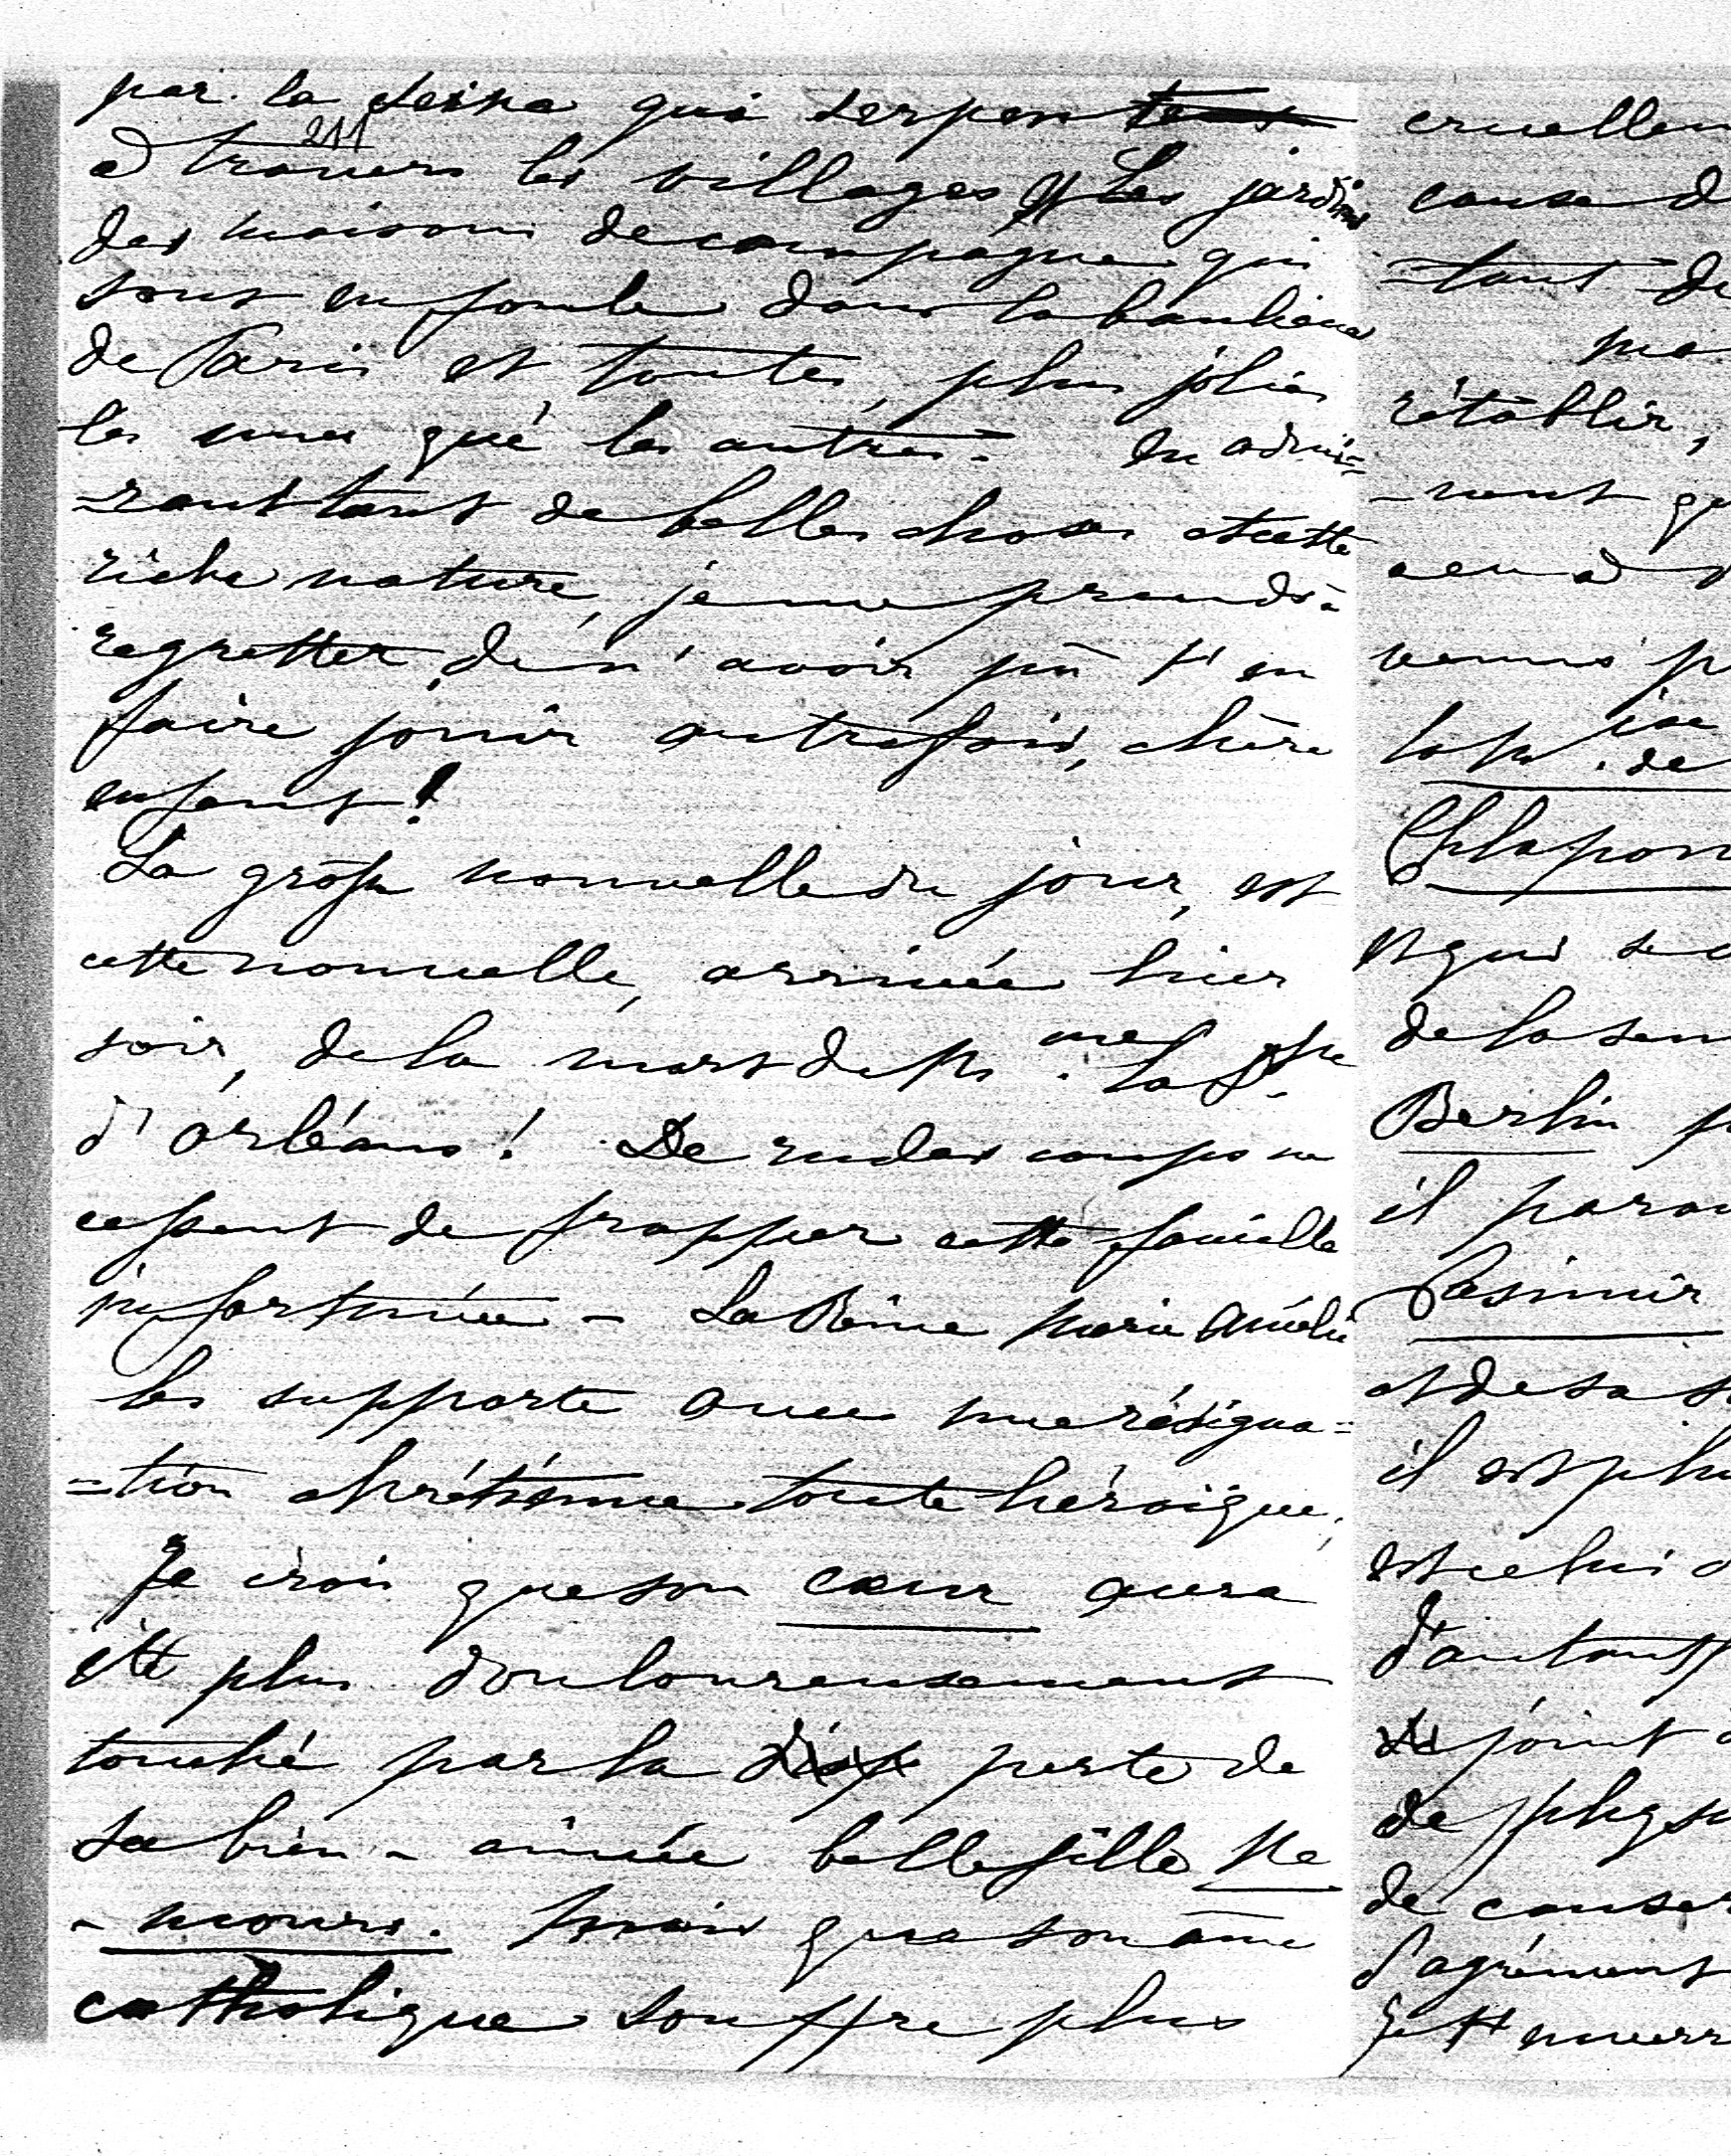 par la Seine qui serpente
211
à travers les villages & Les jardins
des maisons de campagne qui
sont en foule dans la banlieue
de Paris et toutes, plus jolies
les unes que les autres. En admi=
-rant tant de belles choses et cette
riche nature, je me prends à
regretter, de n'avoir pû t'en
faire jouir autrefois, chère
enfant!
La grosse nouvelle du jour, est
cette nouvelle, arrivée hier
soir, de la mort de Me la Dsse
d'Orléans! De rudes coups ne
cessent de frapper cette famille
infortunée - La Reine Marie Amélie
les supporte avec une résigna=
=tion chrétienne toute héroïque.
Je crois que son cœur aura
été plus douloureusement
touché par la perte de
sa bien-aimée belle fille Ne
-mours. Mais que son âme
catholique souffre plus
cruellem
cause d
-tant de
rétablir,
-nent
venus p
la pce de
Chlapon
et qui se
de la sem
Berlin p
il parai
Casimir
et de sa s
il est plu
est celui d
d'autant
joint
de phys
de causer
d'agrément